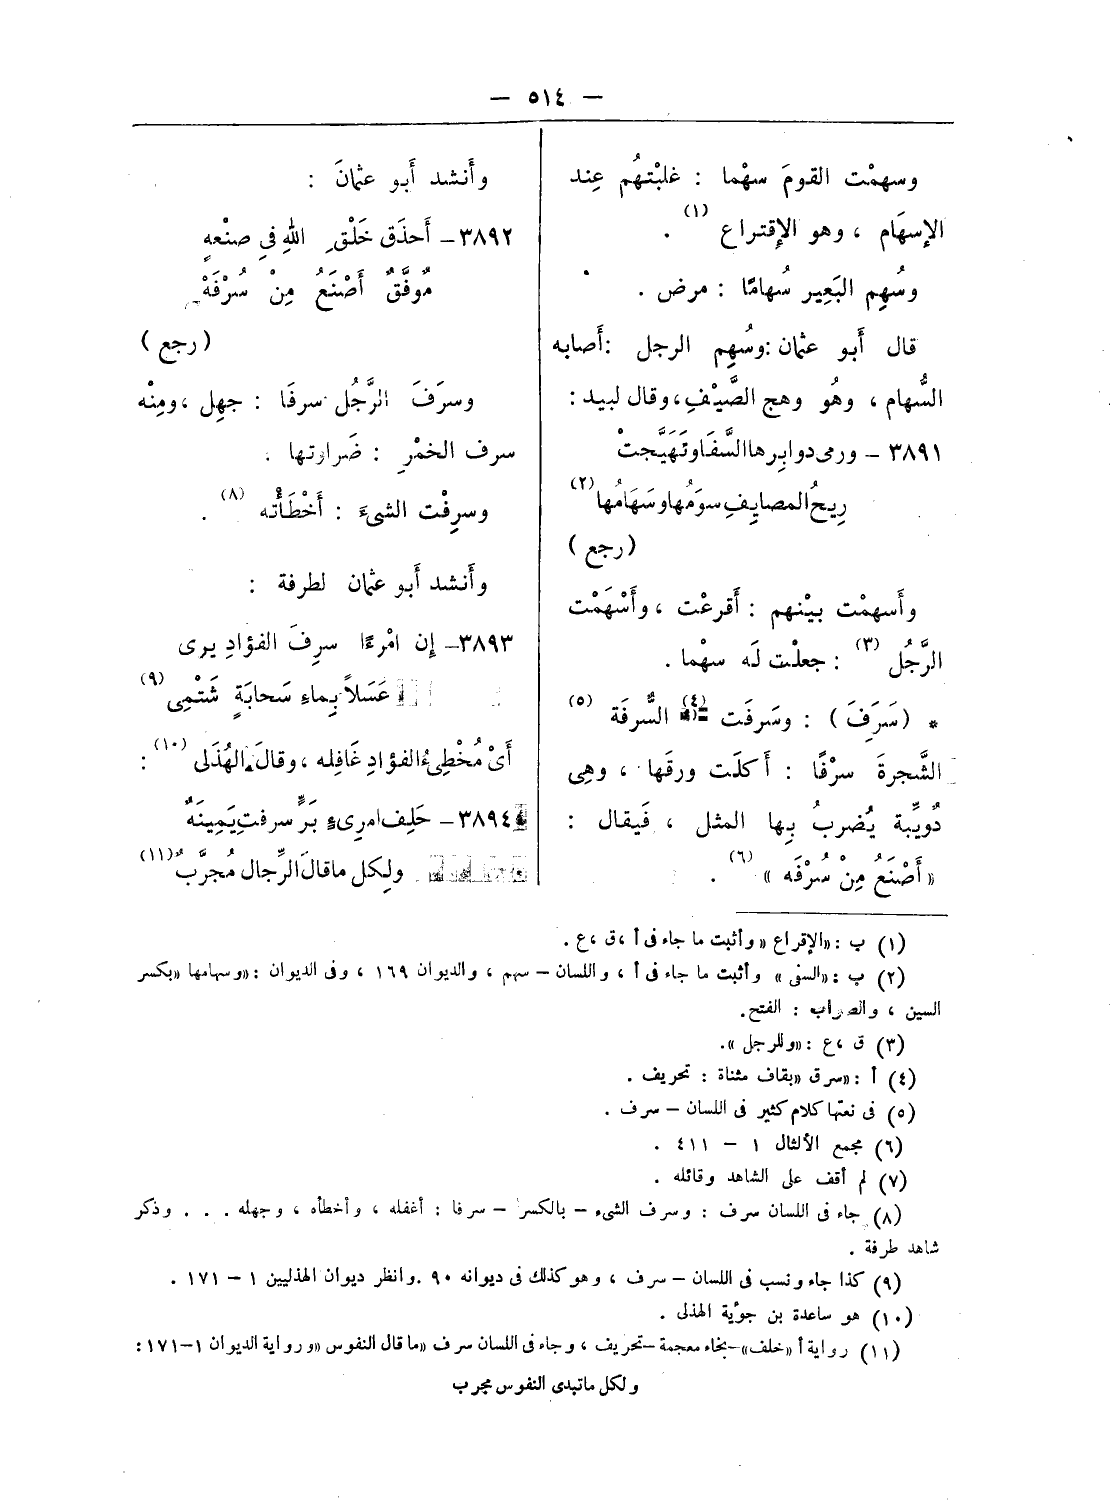 — ٥١٤ —
وسهمْت القومَ سهْما : غلبْتهُم عِند
الإسهَام ، وهو الإقتراع (١) .
وسُهِم البَعِير سُهامًا : مرض .
قال أَبو عثمان :وسُهِم الرجل :أَصابه
السُّهام ، وهُو وهج الصَّيْفِ،وقال لبيد :
٣٨٩١ – ورمى دوابِرها السَّفَا وتَهَيَّجتْ
رِيحُ المصايِفِ سومُها وسَهَامُها (٢)
( رجع )
وأَسهمْت بيْنهم : أَقرعْت ، وأَسْهَمْت
الرَّجُل (٣) : جعلْت لَه سهْما .
* ( سَرَفَ ) : وسَرفَت (٤) السُّرفَة (٥)
الشَّجرةَ سرْفًا : أَكلَت ورقَها ، وهِى
دُويِّبة يُضربُ بِها المثل ، فَيقال :
« أَصْنَعُ مِنْ سُرْفَه » (٦) .
وأَنشد أَبو عثمانَ :
٣٨٩٢ – أَحذَق خَلْقِ اللهِ فى صنْعهِ
مُوفَّقٌ أَصْنَعُ مِنْ سُرْفَهْ
( رجع )
وسرَفَ الرَّجُل سرفَا : جهِل ،ومِنْه
سرف الخمْرِ : ضَراوتها .
وسرِفْت الشىءَ : أَخْطَأْته (٨) .
وأَنشد أَبو عثمان لطرفة :
٣٨٩٣– إِن امْرءًا سرِفَ الفؤادِ يرى
عَسَلاً بِماءِ سَحابَةٍ شَتْمِى (٩)
أَىْ مُخْطِىءُ الفؤادِ غَافِله ، وقالَ الهُذَلى (١٠) :
٣٨٩٤ – حَلِف امرِىءٍ بَرٍّ سرفتِ يَمِينَهُ
ولِكل ماقالَ الرِّجال مُجرَّبُ (١١)
(١) ب : «الإقراع » وأثبت ما جاء فى أ ،ق ،ع .
(٢) ب : «السنى » وأثبت ما جاء فى أ ، واللسان – سهم ، والديوان ١٦٩ ، وفى الديوان : «وسهامها «بكسر
السين ، والصراب : الفتح.
(٣) ق ،ع : «وللرجل ».
(٤) أ : «سرق «بقاف مثناة : تحريف .
(٥) فى نعتها كلام كثير فى اللسان – سرف .
(٦) مجمع الألثال ١ – ٤١١ .
(٧) لم أقف على الشاهد وقائله .
(٨) جاء فى اللسان سرف : وسرف الشىء – بالكسر – سرفا : أغفله ، وأخطأه ، وجهله . . . وذكر
شاهد طرفة .
(٩) كذا جاء ونسب فى اللسان – سرف ، وهو كذلك فى ديوانه ٩٠ .وانظر ديوان الهذليين ١ – ١٧١ .
(١٠) هو ساعدة بن جؤية الهذلى .
(١١) رواية أ «خلف» –بخاء معجمة –تحريف ، وجاء فى اللسان سرف «ما قال النفوس «ورواية الديوان ١–١٧١ :
ولكل ماتبدى النفوس مجرب